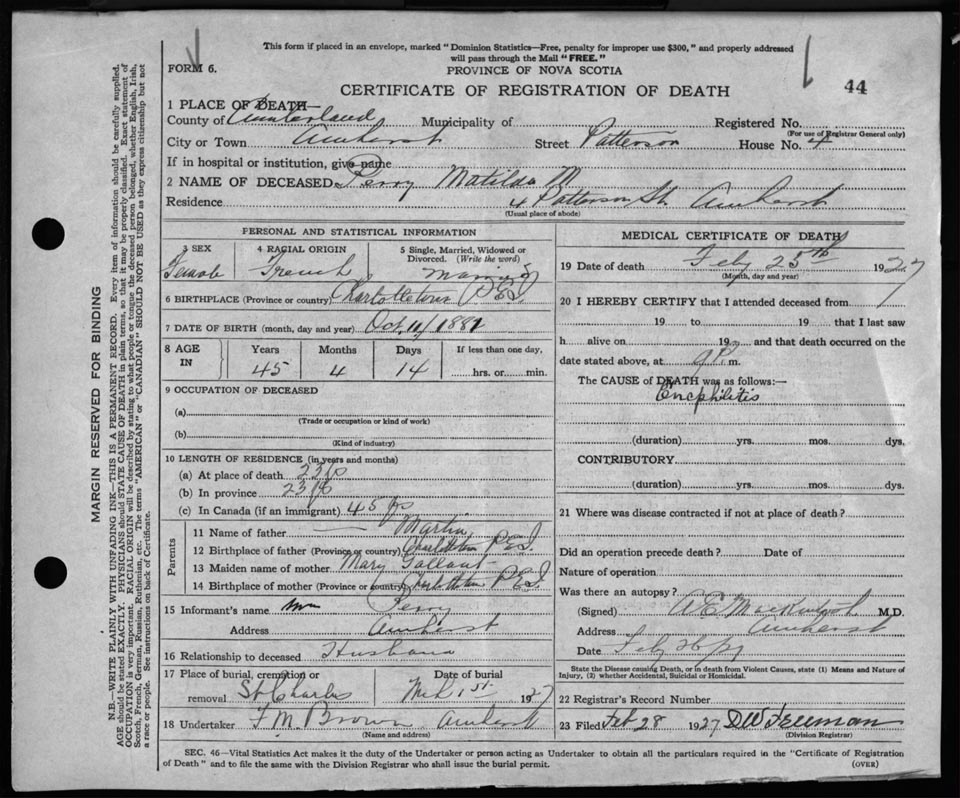 This form if placed in an envelope, marked "Dominion Statistics—Free, penalty for improper use $300," and properly addressed
will pass through the Mail "FREE."
FORM 6.
PROVINCE OF NOVA SCOTIA
CERTIFICATE OF REGISTRATION OF DEATH
44
1 PLACE OF DEATH—
County of Cumberland Municipality of Registered No.
(For use of Registrar General only)
City or Town Amherst Street Patterson House No. 4
If in hospital or institution, give name
2 NAME OF DECEASED Perry Matilda M
Residence 4 Patterson St. Amherst
(Usual place of abode)
PERSONAL AND STATISTICAL INFORMATION
3 SEX Female
4 RACIAL ORIGIN French
5 Single, Married, Widowed or Divorced. (Write the word) Married
6 BIRTHPLACE (Province or country) Charlottetown P.E.I.
7 DATE OF BIRTH (month, day and year) Oct. 11/1881
8 AGE IN Years 45 Months 4 Days 14 If less than one day, hrs. or min.
9 OCCUPATION OF DECEASED
(a)
(Trade or occupation or kind of work)
(b)
(Kind of industry)
10 LENGTH OF RESIDENCE (in years and months)
(a) At place of death 22
(b) In province 23
(c) In Canada (if an immigrant) 45
Parents
11 Name of father — Martin
12 Birthplace of father (Province or country) P.E.I.
13 Maiden name of mother Mary Gallant
14 Birthplace of mother (Province or country) P.E.I.
15 Informant's name Perry
Address Amherst
16 Relationship to deceased Husband
17 Place of burial, cremation or removal St. Charles
Date of burial 1st 1927
18 Undertaker F. M. Brown Amherst
(Name and address)
MEDICAL CERTIFICATE OF DEATH
19 Date of death Feby 25th 1927
(Month, day and year)
20 I HEREBY CERTIFY that I attended deceased from
19 to 19 that I last saw
h alive on 192 and that death occurred on the
date stated above, at 9 P. m.
The CAUSE of DEATH was as follows:—
Encphilitis
(duration) yrs. mos. dys.
CONTRIBUTORY
(duration) yrs. mos. dys.
21 Where was disease contracted if not at place of death?
Did an operation precede death? Date of
Nature of operation
Was there an autopsy?
(Signed) M.D.
Address Amherst
Date Feby 26/27
State the Disease causing Death, or in death from Violent Causes, state (1) Means and Nature of
Injury, (2) whether Accidental, Suicidal or Homicidal.
22 Registrar's Record Number
23 Filed Feb 28 1927 D W Freeman
(Division Registrar)
SEC. 46—Vital Statistics Act makes it the duty of the Undertaker or person acting as Undertaker to obtain all the particulars required in the "Certificate of Registration
of Death" and to file the same with the Division Registrar who shall issue the burial permit. (OVER)
MARGIN RESERVED FOR BINDING
N.B.—WRITE PLAINLY WITH UNFADING INK—THIS IS A PERMANENT RECORD. Every item of information should be carefully supplied.
AGE should be stated EXACTLY. PHYSICIANS should STATE CAUSE OF DEATH in plain terms, so that it may be properly classified. Exact statement of
OCCUPATION is very important. RACIAL ORIGIN will be described by stating to what people or tongue the deceased person belonged, whether English, Irish,
Scotch, French, German, Russian, Ruthenian, etc. The terms "AMERICAN" or "CANADIAN" SHOULD NOT BE USED as they express citizenship but not
a race or people. See instructions on back of Certificate.